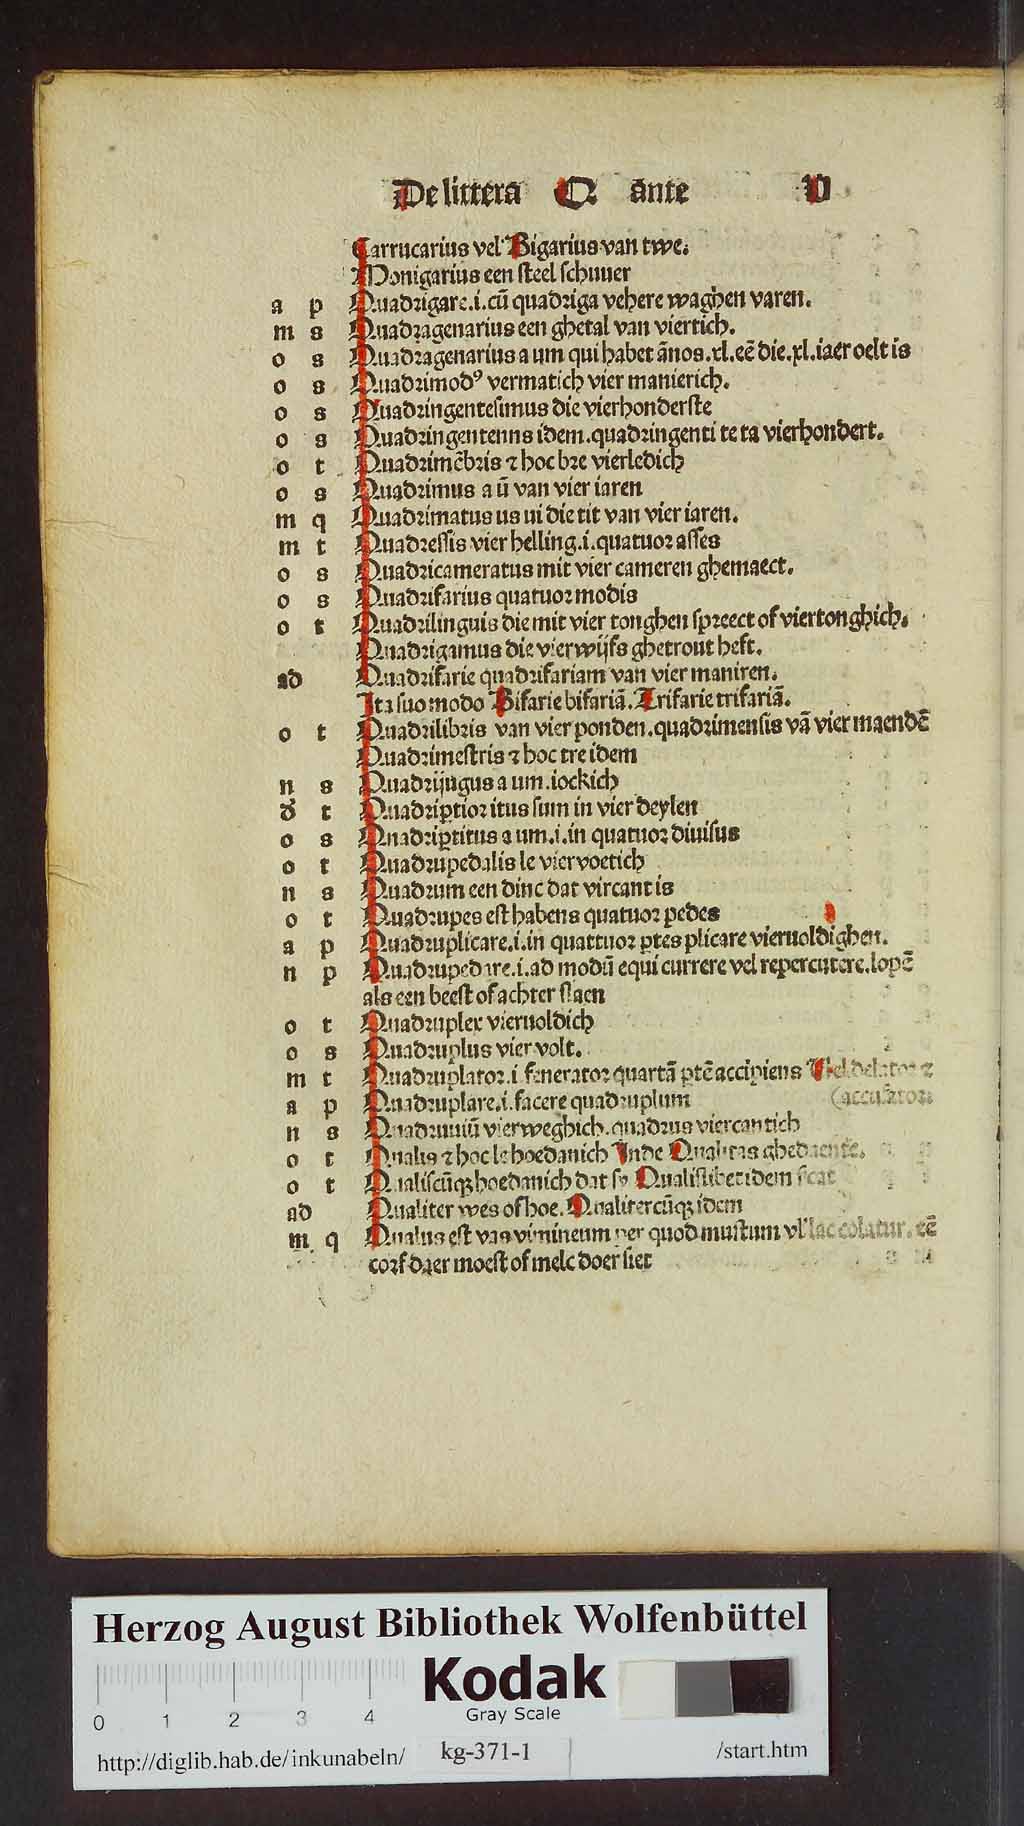 De littera Q ante U
Carrucarius vel Bigarius van twe.
Monigarius een steel schuuer
a p Quadrigare.i.cū quadriga vehere waghen varen.
m s Quadragenarius een ghetal van viertich.
o s Quadragenarius a um qui habet ānos.xl.eē die.xl.iaer oelt is
o s Quadrimodꝰ vermatich vier manierich.
o s Quadringentesimus die vierhonderste
o s Quadringentenns idem.quadringenti te ta vierhondert.
o t Quadrimēbris ⁊ hoc bre vierledich
o s Quadrimus a ū van vier iaren
m q Quadrimatus us ui die tit van vier iaren.
m t Quadressis vier helling.i.quatuor asses
o s Quadricameratus mit vier cameren ghemaect.
o s Quadrifarius quatuor modis
o t Quadrilinguis die mit vier tonghen spreect of viertonghich.
Quadrigamus die vier wijfs ghetrout heft.
ad Quadrifarie quadrifariam van vier maniren.
Ita suo modo Bifarie bifariā.Trifarie trifariā.
o t Quadrilibris van vier ponden.quadrimensis vā vier maendē
Quadrimestris ⁊ hoc tre idem
n s Quadrijugus a um.iockich
t Quadriꝑtior itus sum in vier deylen
o s Qnadriꝑtitus a um.i.in quatuor diuisus
o t Quadrupedalis le viervoetich
n s Quadrum een dinc dat vircant is
o t Quadrupes est habens quatuor pedes
a p Quadruplicare.i.in quattuor ꝑtes plicare vieruoldighen.
n p Quadrupedare.i.ad modū equi currere vel repercutere.lopē
als een beest of achter slaen
o t Quadruplex vieruoldich
o s Quadruplus vier volt.
m t Quadruplator.i.fenerator quartā ꝑtē accipiens Vel delator ⁊
a p Quadruplare.i.facere quadruplum (accusator
n s Quadruuiū vierweghich.quadrus viercantich
o t Qualis ⁊ hoc le hoedanich Inde Qualitas ghedaente.
o t Qualiscūqꝫ hoedanich dat sy Qualislibet idem
ad Qualiter wes of hoe.Qualitercūqꝫ idem
m q Qualus est vas vimineum per quod mustum vl' lac colatur.eē
corf daer moest of melc doer siet
Herzog August Bibliothek Wolfenbüttel
Kodak
Gray Scale
0 1 2 3 4
http://diglib.hab.de/inkunabeln/ kg-371-1 /start.htm